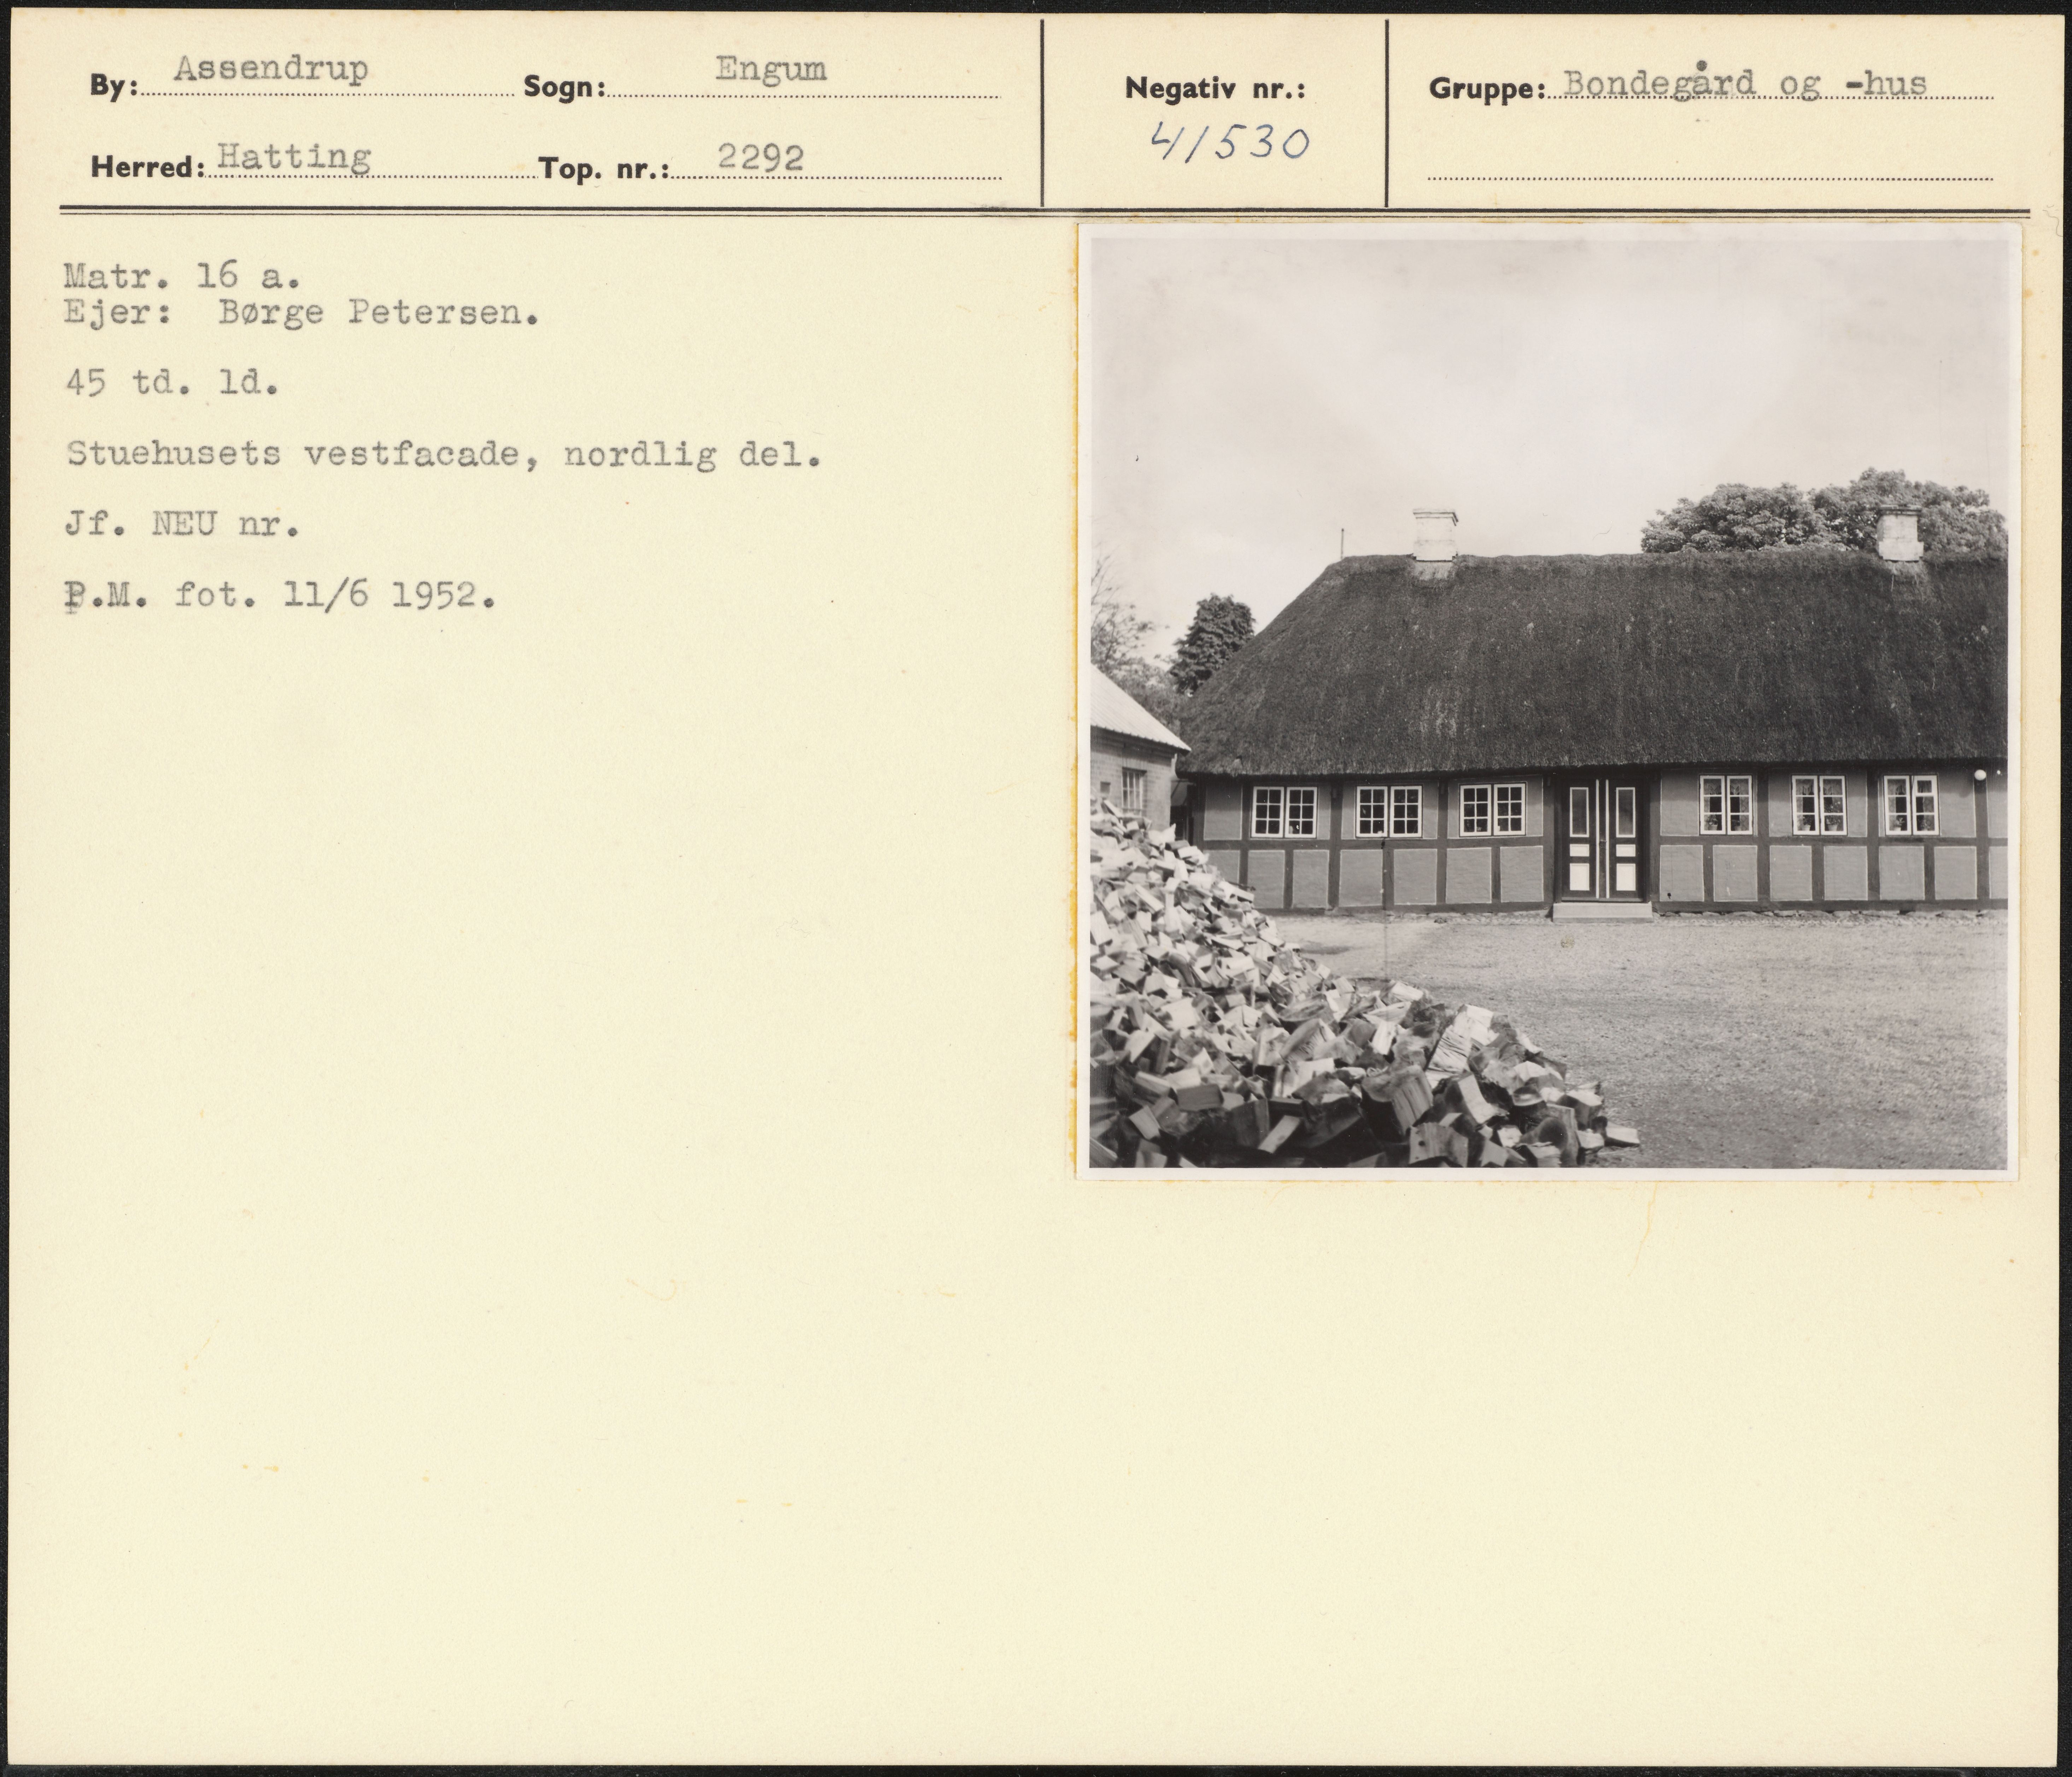 By: Assendrup Sogn: Engum
Herred: Hatting Top. nr.: 2292
Negativ nr.:
41530
Gruppe: Bondegård og -hus
Matr. 16 a.
Ejer: Børge Petersen.
45 td. ld.
Stuehusets vestfacade, nordlig del.
Jf. NEU nr.
P.M. fot. 11/6 1952.